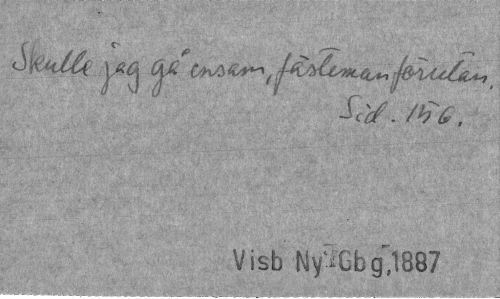 Skulle jag gå ensam, fästeman förutan.
Sid. 156.
Visb Ny Gbg, 1887